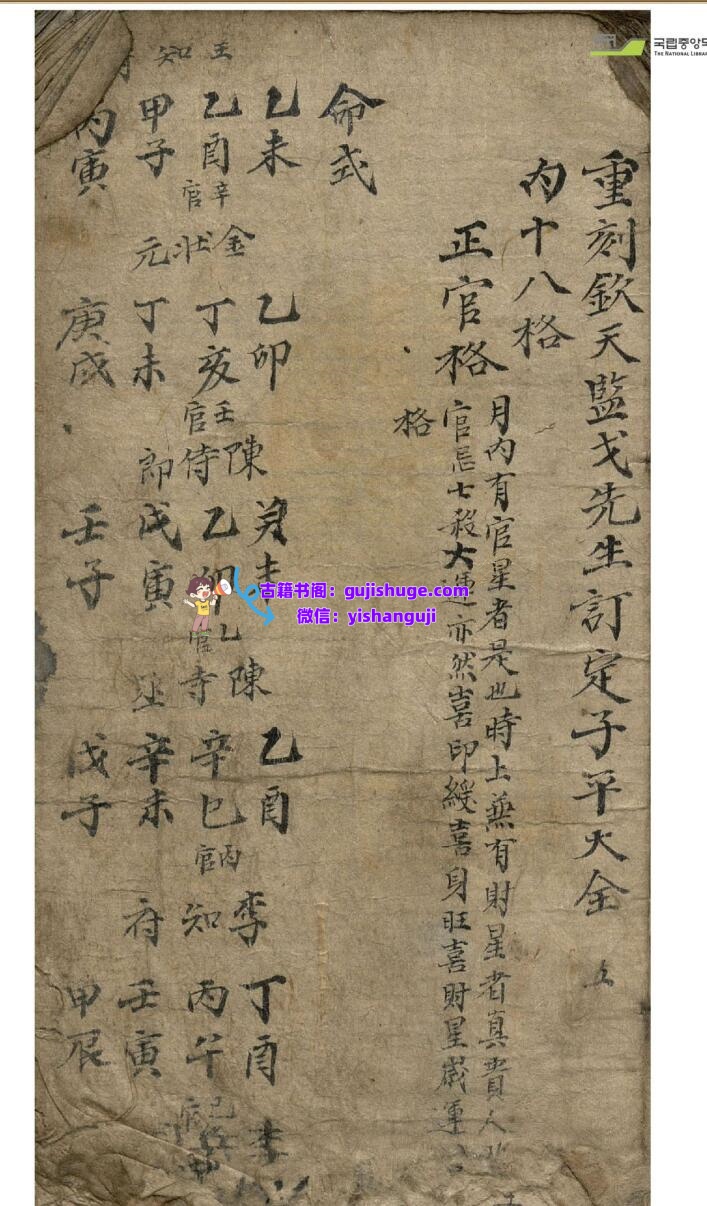 重刻欽天監戈先生訂定子平大全
五
内十八格
正官格
月内有官星者是也時上兼有財星者真貴人
官忌七殺大運亦然喜印綬喜身旺喜財星歲運
格
命式
王知
乙未
乙酉
辛官
甲子
丙寅
金狀元
乙卯
丁亥
壬官
丁未
庚戌
陳侍郎
未
乙卯
乙官
戊寅
壬子
陳寺丞
乙酉
辛巳
丙官
辛未
戊子
李知府
丁酉
丙午
己官
壬寅
甲辰
李
국립중앙도
THE NATIONAL LIBRA
古籍书阁：gujishuge.com
微信：yishanguji